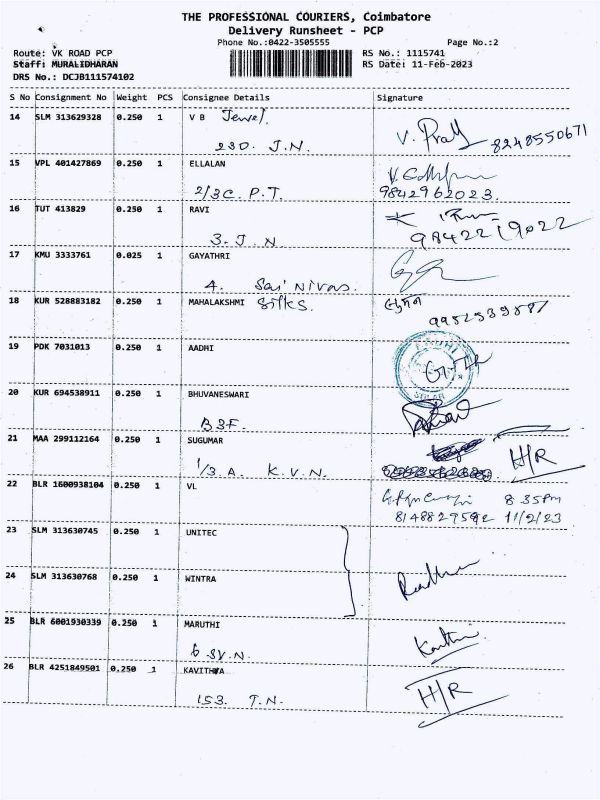 THE PROFESSIONAL COURIERS, Coimbatore
Delivery Runsheet - PCP
Phone No.:0422-3505555 Page No.:2
Route: VK ROAD PCP RS No.: 1115741
Staff: MURALIDHARAN RS Date: 11-Feb-2023
DRS No.: DCJB111574102
S No Consignment No Weight PCS Consignee Details Signature
14 SLM 313629328 0.250 1 V B Jewel
230. J.N. V. 8248550671
15 VPL 401427869 0.250 1 ELLALAN
2/3C. P.T. 9842962023.
16 TUT 413829 0.250 1 RAVI
3. J.N 9842219022
17 KMU 3333761 0.025 1 GAYATHRI
4. Sai Nivas.
18 KUR 528883182 0.250 1 MAHALAKSHMI Silks.
19 PDK 7031013 0.250 1 AADHI
SOLAR
20 KUR 694538911 0.250 1 BHUVANESWARI
B3F.
21 MAA 299112164 0.250 1 SUGUMAR H/R
1/3. A. K.V.N.
22 BLR 1600938104 0.250 1 VL 8 35Pm
11/2/23
23 SLM 313630745 0.250 1 UNITEC
24 SLM 313630768 0.250 1 WINTRA
25 BLR 6001930339 0.250 1 MARUTHI
6 SV.N.
26 BLR 4251849501 0.250 1 KAVITHRA H/R
153. T.N.